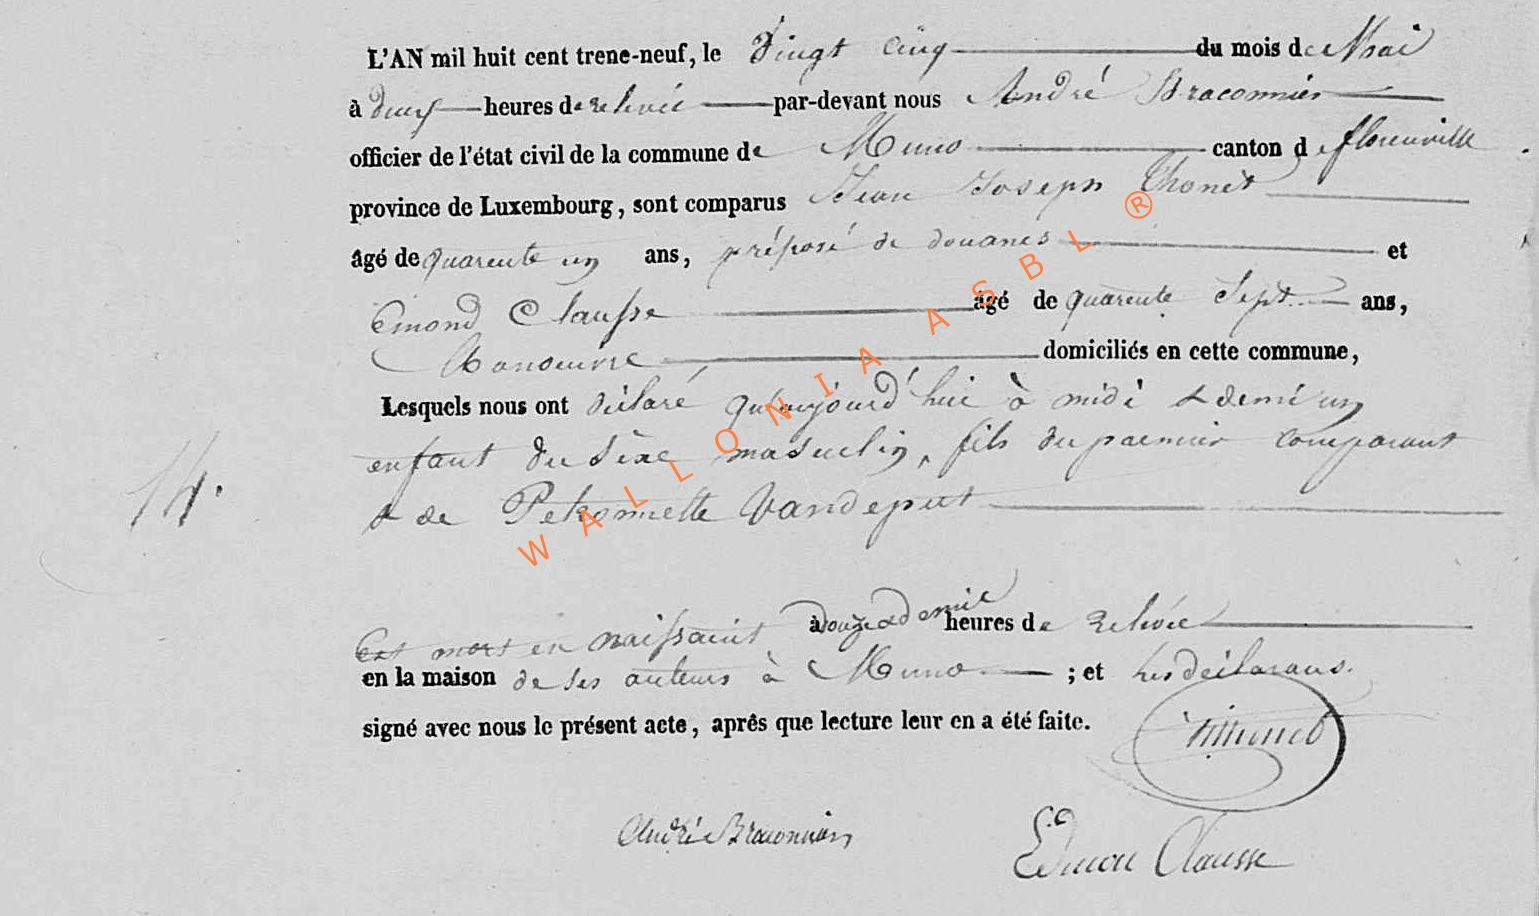 L'AN mil huit cent trene-neuf, le Vingt Cinq du mois de Mai
à deux heures de relevée par-devant nous André Braconnier
officier de l'état civil de la commune de Muno canton de florenville
province de Luxembourg, sont comparus Jean Joseph Thonet
âgé de quarente un ans, préposé de douanes et
Emond Clausse âgé de quarente Sept ans,
Manoeuvre domiciliés en cette commune,
Lesquels nous ont déclaré qu'aujourd'hui à midi & demi un
enfant du Sexe masculin, fils du premier comparant
& de Petronnelle Vandeput
14.
Est mort en naissant à douze & demie heures de relevée
en la maison de ses auteurs à Muno ; et les déclarans
signé avec nous le présent acte, après que lecture leur en a été faite.
André Braconnier
Edmon Clausse
WALLONIA ASBL ®